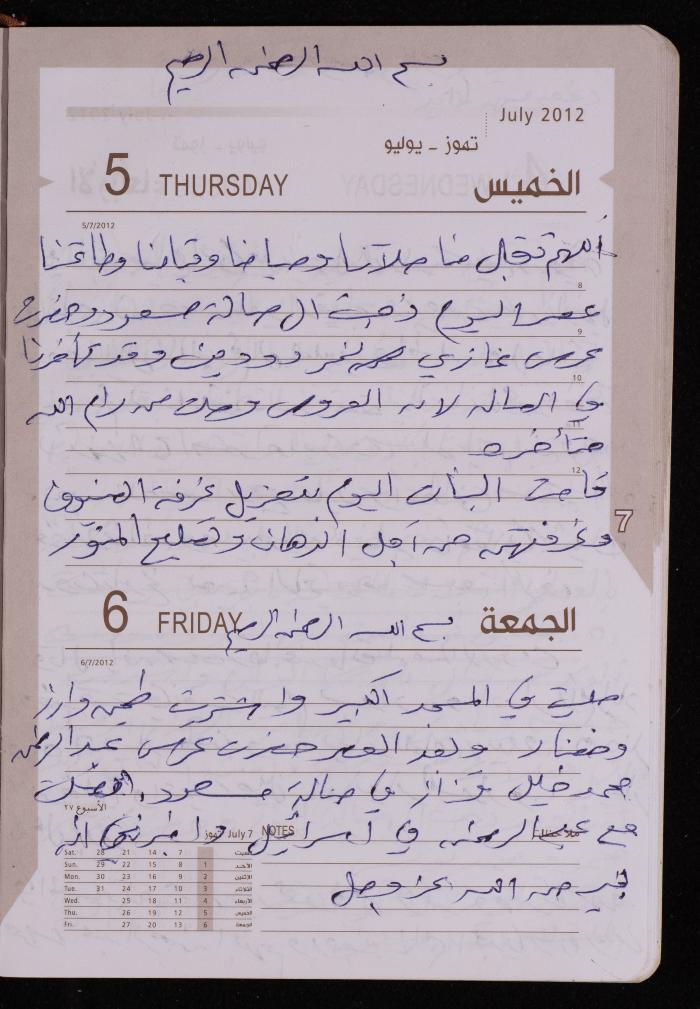 بسم الله الرحمن الرحيم
July 2012
تموز - يوليو
5 THURSDAY الخميس
5/7/2012
اللهم تقبل منا صلاتنا وصيامنا وقيامنا وطاعتنا
8
عصر اليوم ذهبت الى صالة مسعود وحضرت
9
عرس غازي وقد تأخرنا
10
في الصالة لانه العروس وصلت من رام الله
11
متأخره
12
قامت البنات اليوم بتعزيل غرفة الضيوف
وغرفتهم من اجل الدهان وتصليح
7
6 FRIDAY الجمعة
بسم الله الرحمن الرحيم
6/7/2012
صليت في المسجد الكبير واشتريت طحين وارز
وخضار وبعد العصر حضرت عرس عبد الرحمن
محمد خليل في صالة مسعود
الأسبوع ٢٧
مع عبد الرحمن في اسرائيل واخبرني انه
July 7 تموز
NOTES ملاحظات
بخير من الله عز وجل
Sat. 28 21 14 7 السبت
Sun. 29 22 15 8 1 الأحد
Mon. 30 23 16 9 2 الاثنين
Tue. 31 24 17 10 3 الثلاثاء
Wed. 25 18 11 4 الأربعاء
Thu. 26 19 12 5 الخميس
Fri. 27 20 13 6 الجمعة